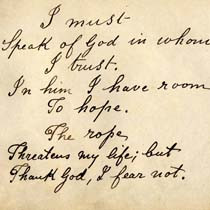 I must
Speak of God in whom
I trust.
In him I have room
To hope.
The rope
Threatens my life; but
Thank God, I fear not.